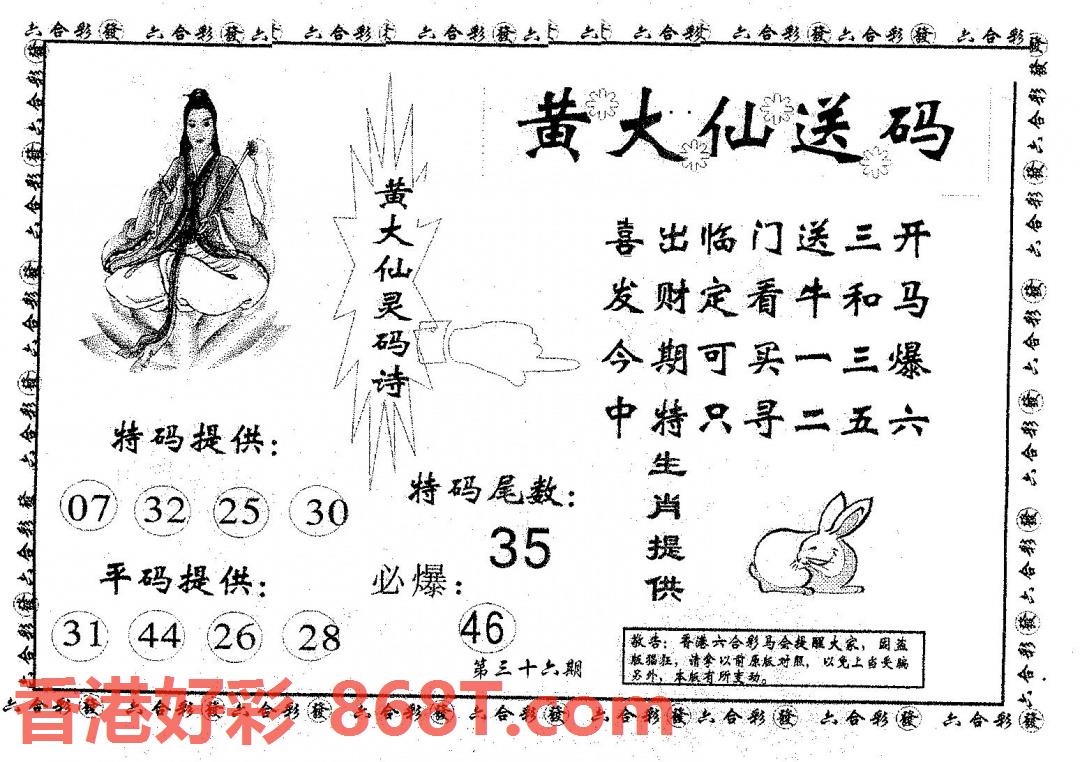 六合彩發 六合彩發 六合彩發 六合彩發 六合彩發 六合彩發 六合彩發 六合彩發
黄大仙送码
黄大仙灵码诗
喜出临门送三开
发财定看牛和马
今期可买一三爆
中特只寻二五六
特码提供：
07 32 25 30
平码提供：
31 44 26 28
特码尾数：
35
必爆：
46
第三十六期
生肖提供
敬告：香港六合彩马会提醒大家，因盗
版猖狂，请拿以前原版对照，以免上当受骗
另外，本版有所变动。
香港好彩 868T.com